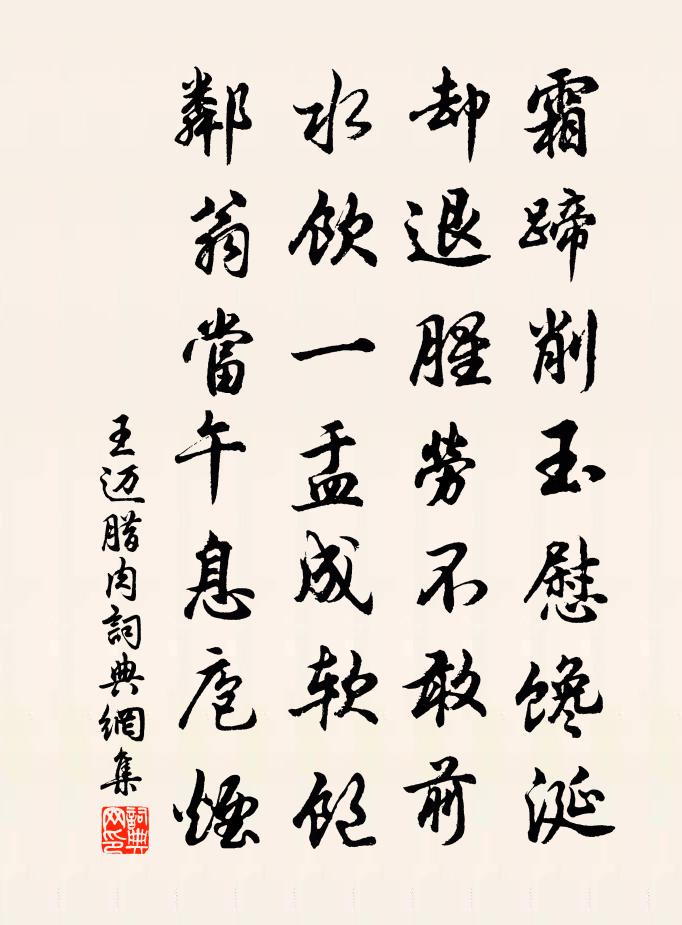 霜蹄削玉慰馋涎
却退腥劳不敢前
水饮一盂成软饱
鄰翁當午息庖煙
王迈腊肉詞典網集
詞典網印